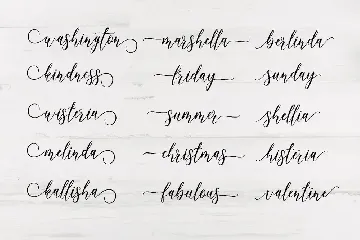 washington marshella berlinda
kindness friday sunday
wisteria summer shellia
melinda christmas histeria
kallisha fabulous valentine